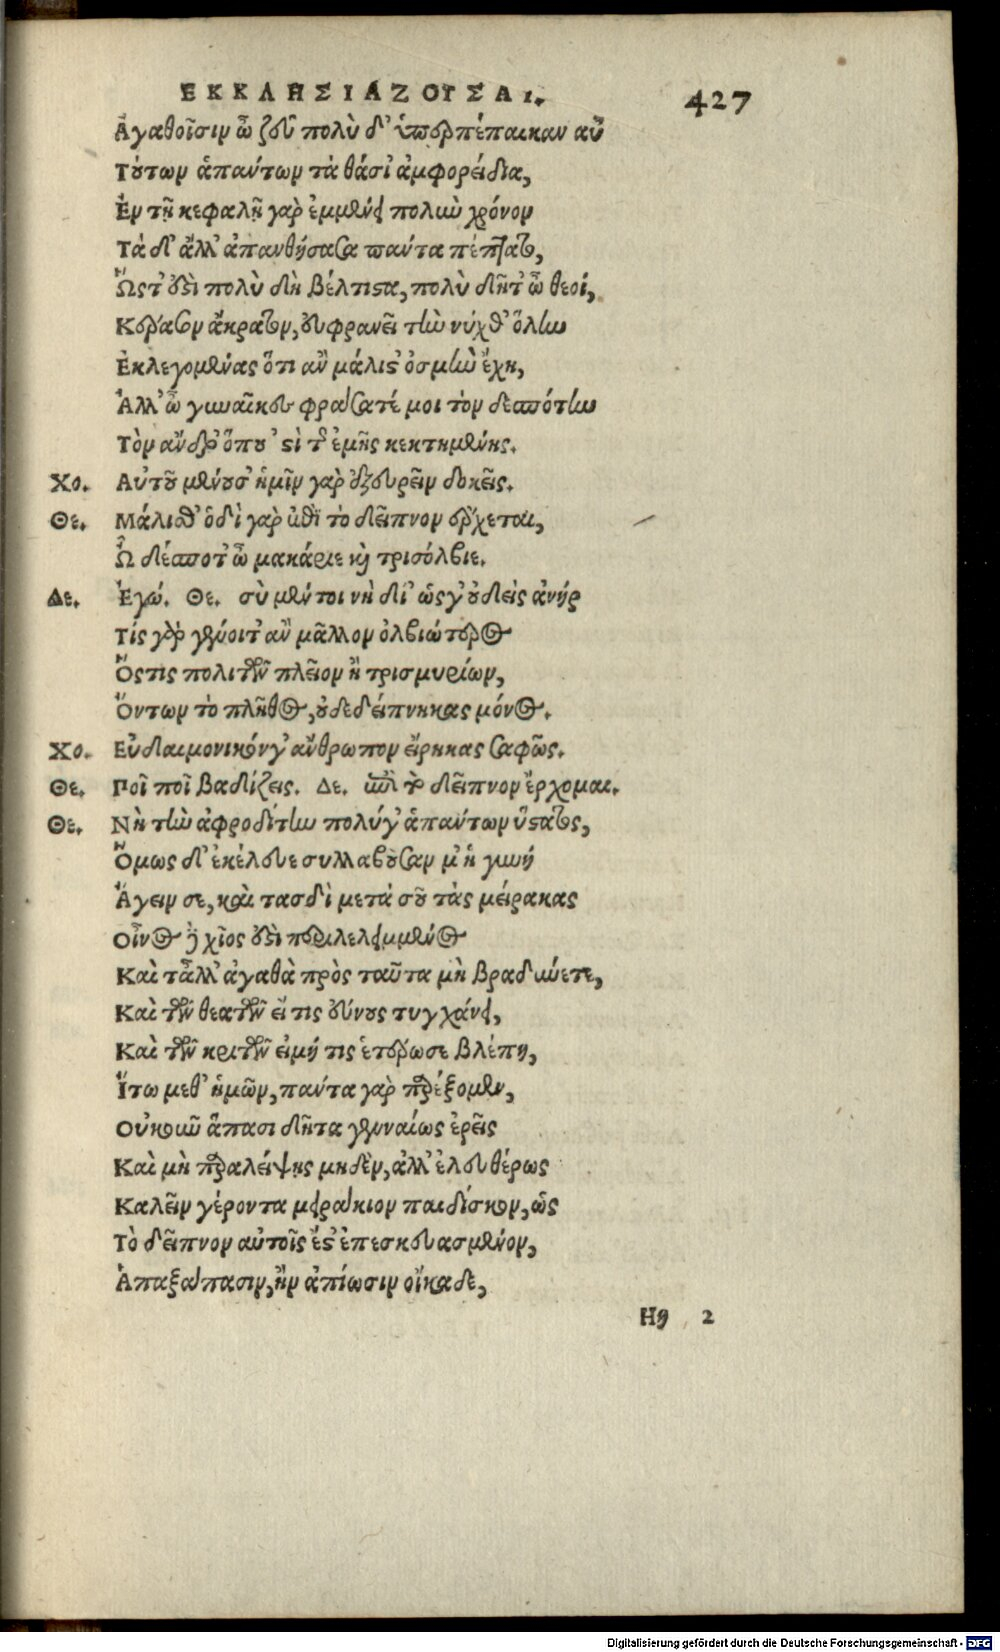 ΕΚΚΛΗΣΙΑΖΟΥΣΑΙ. 427
Ἀγαθοῖσιν ὦ ζεῦ πολὺ δ' ὑπερπέπαικαν αὖ
Τούτων ἁπάντων τὰ θάσι' ἀμφορείδια,
Ἐν τῇ κεφαλῇ γὰρ ἐμμένει πολιὼ χρόνον
Τὰ δ' ἄλλ' ἀπανθήσαντα πάντα πέπτατο,
Ὥστ' ἐστὶ πολὺ δὴ βέλτιστα, πολὺ δῆτ' ὦ θεοί,
Κέρασον ἄκρατον, εὐφρανεῖ τὴν νύχθ' ὅλην
Ἐκλεγομένας ὅτι ἂν μάλιστ' ὀσμὴν ἔχῃ,
Ἀλλ' ὦ γυναῖκες φράσατέ μοι τὸν δεσπότην
Τὸν ἄνδρ' ὅπου 'στὶ τῆς ἐμῆς κεκτημένης.
Χο. Αὐτοῦ μένουσ' ἡμῖν γὰρ ἐξευρεῖν δοκεῖς.
Θε. Μάλισθ' ὁδὶ γὰρ ἐπὶ τὸ δεῖπνον ἔρχεται,
Ὦ δέσποτ' ὦ μακάριε καὶ τρισόλβιε.
Δε. Ἐγώ. Θε. σὺ μέντοι νὴ δί' ὥς γ' οὐδεὶς ἀνήρ
Τίς γὰρ γένοιτ' ἂν μᾶλλον ὀλβιώτερος
Ὅστις πολιτῶν πλεῖον ἢ τρισμυρίων,
Ὄντων τὸ πλῆθος, οὐ δεδείπνηκας μόνος.
Χο. Εὐδαιμονικόν γ' ἄνθρωπον εἴρηκας σαφῶς.
Θε. Ποῖ ποῖ βαδίζεις. Δε. ἐπὶ τὸ δεῖπνον ἔρχομαι.
Θε. Νὴ τὴν ἀφροδίτην πολύ γ' ἁπάντων ὕστατος,
Ὅμως δ' ἐκέλευε συλλαβοῦσαν μ' ἡ γυνή
Ἄγειν σε, καὶ τασδὶ μετὰ σοῦ τὰς μείρακας
Οἶνος δὲ χῖος ἐστὶ περιλελειμμένος
Καὶ τἆλλ' ἀγαθὰ πρὸς ταῦτα μὴ βραδύνετε,
Καὶ τῶν θεατῶν εἴ τις εὔνους τυγχάνει,
Καὶ τῶν κριτῶν εἰ μή τις ἑτέρωσε βλέπῃ,
Ἴτω μεθ' ἡμῶν, πάντα γὰρ παρέξομεν,
Οὐκοῦν ἅπασι δῆτα γενναίως ἐρεῖς
Καὶ μὴ παραλείψῃς μηδὲν, ἀλλ' ἐλευθέρως
Καλεῖν γέροντα μειράκιον παιδίσκον, ὡς
Τὸ δεῖπνον αὐτοῖς ἔστ' ἐπεσκευασμένον,
Ἁπαξάπασιν, ἢν ἀπίωσιν οἴκαδε,
Hh 2
Digitalisierung gefördert durch die Deutsche Forschungsgemeinschaft - DFG